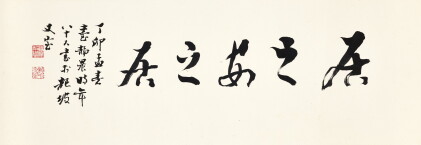 居之安之居
丁卯孟春
臺靜農時年
八十六書於龍坡
丈室